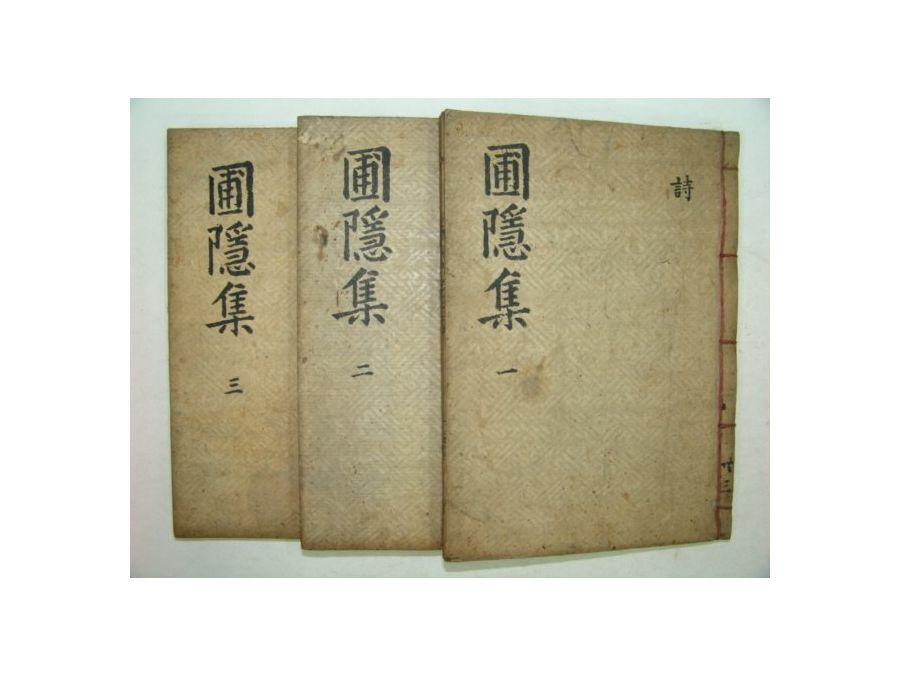 詩
圃隱集 一
圃隱集 二
圃隱集 三